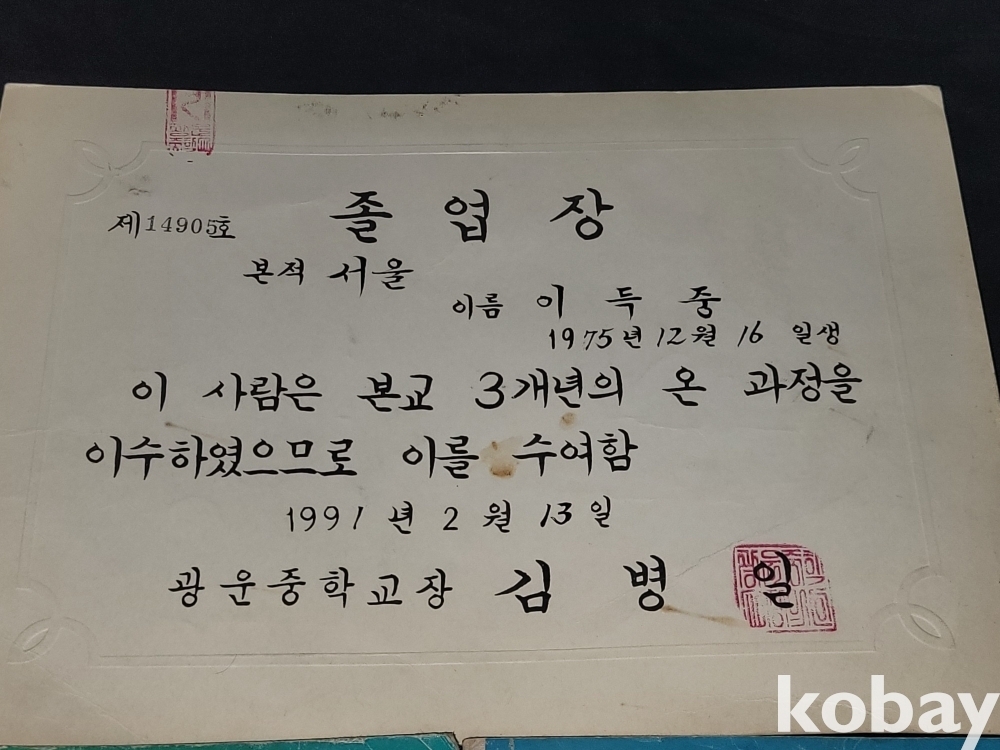 제14905호
졸 업 장
본적 서울
이름 이 득 중
1975년 12월 16 일생
이 사람은 본교 3개년의 온 과정을
이수하였으므로 이를 수여함
1991 년 2 월 13 일
광운중학교장 김 병 일
kobay